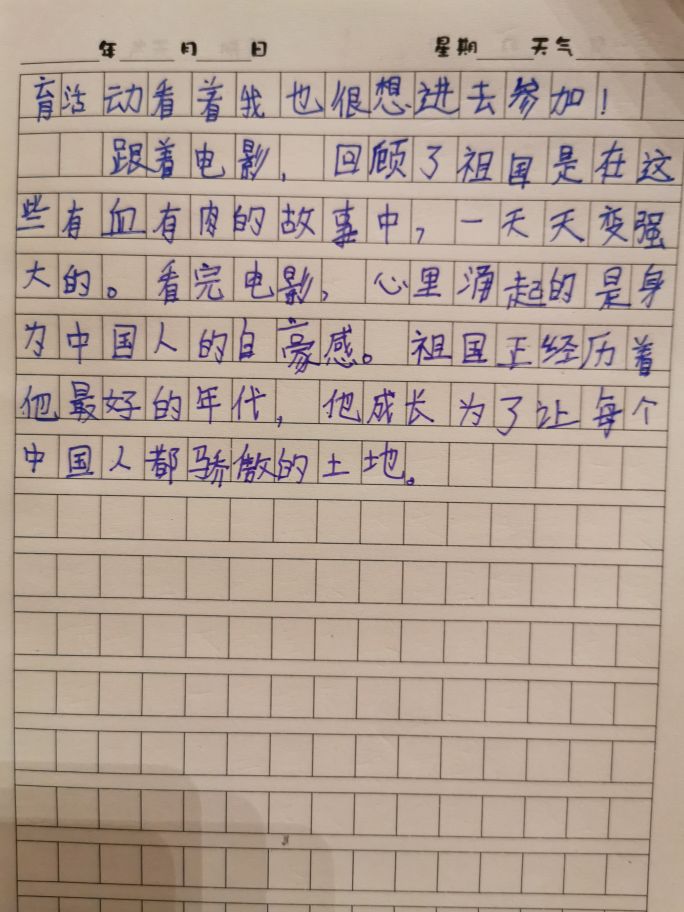 年 月 日 星期 天气
育活动看着我也很想进去参加！
跟着电影，回顾了祖国是在这
些有血有肉的故事中，一天天变强
大的。看完电影，心里涌起的是身
为中国人的自豪感。祖国正经历着
他最好的年代，他成长为了让每个
中国人都骄傲的土地。